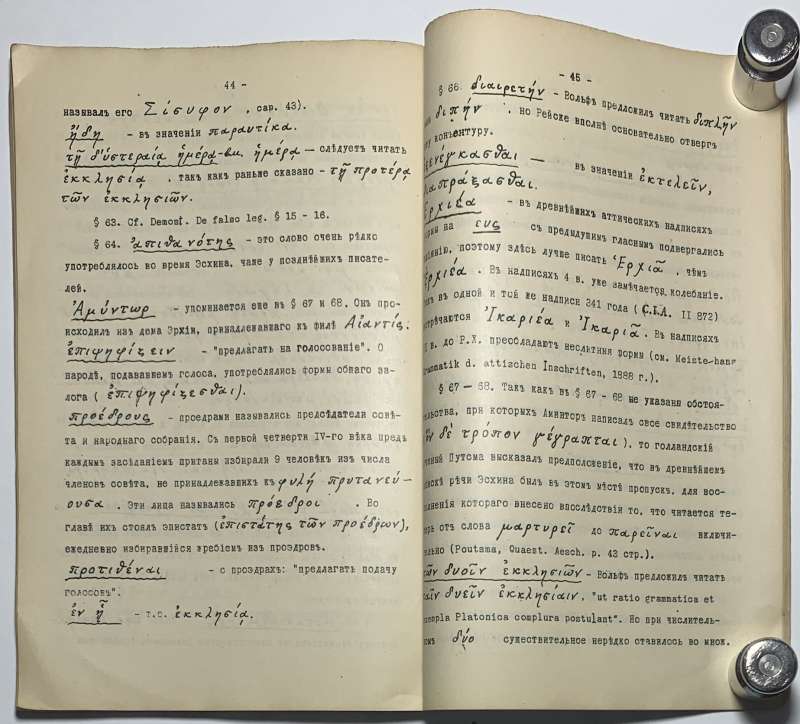 44 -
называлъ его Σίσυφον , cap. 43).
ἤδη - въ значенiи παραυτίκα.
τῇ δ'ὑστεραίᾳ ἡμέρᾳ-вм. ἡμέρᾳ — слѣдуетъ читать
ἐκκλησίᾳ , такъ какъ раньше сказано - τῇ προτέρᾳ
τῶν ἐκκλησιῶν.
§ 63. Cf. Demosf. De falso leg. § 15 - 16.
§ 64. ἀπιθανότης - это слово очень рѣдко
употреблялось во время Эсхина, чаще у позднѣйшихъ писате-
лей.
Ἀμύντωρ - упоминается еще въ § 67 и 68. Онъ про-
исходилъ изъ дема Эрхiи, принадлежавшаго къ филѣ Αἰαντίς.
ἐπιψηφίζειν - "предлагать на голосованiе". О
народѣ, подававшемъ голоса, употреблялись формы общаго за-
лога ( ἐπιψηφίζεσθαι).
προέδρους - проедрами назывались предсѣдатели совѣ-
та и народнаго собранiя. Съ первой четверти IV-го вѣка предъ
каждымъ засѣданiемъ пританы избирали 9 человѣкъ изъ числа
членовъ совѣта, не принадлежавшихъ къ φυλὴ πρυτανεύ-
ουσα . Эти лица назывались πρόεδροι . Во
главѣ ихъ стоялъ эпистатъ (ἐπιστάτης τῶν προέδρων),
ежедневно избиравшiйся жребiемъ изъ проэдровъ.
προτιθέναι - о проэдрахъ: "предлагать подачу
голосовъ".
ἐν ᾗ - т.е. ἐκκλησίᾳ.
- 45 -
§ 66. διαιρετήν - Вольфъ предложилъ читать διπλῆν
διπήν , но Рейске вполнѣ основательно отвергъ
конъектуру.
ξενέγκασθαι — въ значенiи ἐκτελεῖν,
διαπράξασθαι.
Ἐρχιέα - въ древнѣйшихъ аттическихъ надписяхъ
на ευς съ предыдущимъ гласнымъ подвергались
поэтому здѣсь лучше писать Ἐρχιᾶ , чѣмъ
Ἐρχιέα . Въ надписяхъ 4 в. уже замѣчается колебанiе.
въ одной и той же надписи 341 года ( C.I.A. II 872)
встрѣчаются Ἰκαριέα и Ἰκαριᾶ. Въ надписяхъ
в. до Р.Х. преобладаютъ неслитныя формы (см. Meisterhans
Grammatik d. attischen Inschriften, 1888 г.).
§ 67 — 68. Такъ какъ въ § 67 - 68 не указаны обстоя-
тельства, при которыхъ Аминторъ написалъ свое свидѣтельство
(ὃν δὲ τρόπον γέγραπται), то голландскiй
ученый Путсма высказалъ предположенiе, что въ древнѣйшемъ
спискѣ рѣчи Эсхина былъ въ этомъ мѣстѣ пропускъ, для вос-
полненiя котораго внесено впослѣдствiи то, что читается те-
перь отъ слова μαρτυρεῖ до παρεῖναι включи-
тельно (Poutsma, Quaest. Aesch. p. 43 стр.).
τῶν δυοῖν ἐκκλησιῶν - Вольфъ предложилъ читать
ταῖν δυεῖν ἐκκλησίαιν, "ut ratio grammatica et
exempla Platonica complura postulant". Но при числитель-
номъ δύο существительное нерѣдко ставилось во множ.